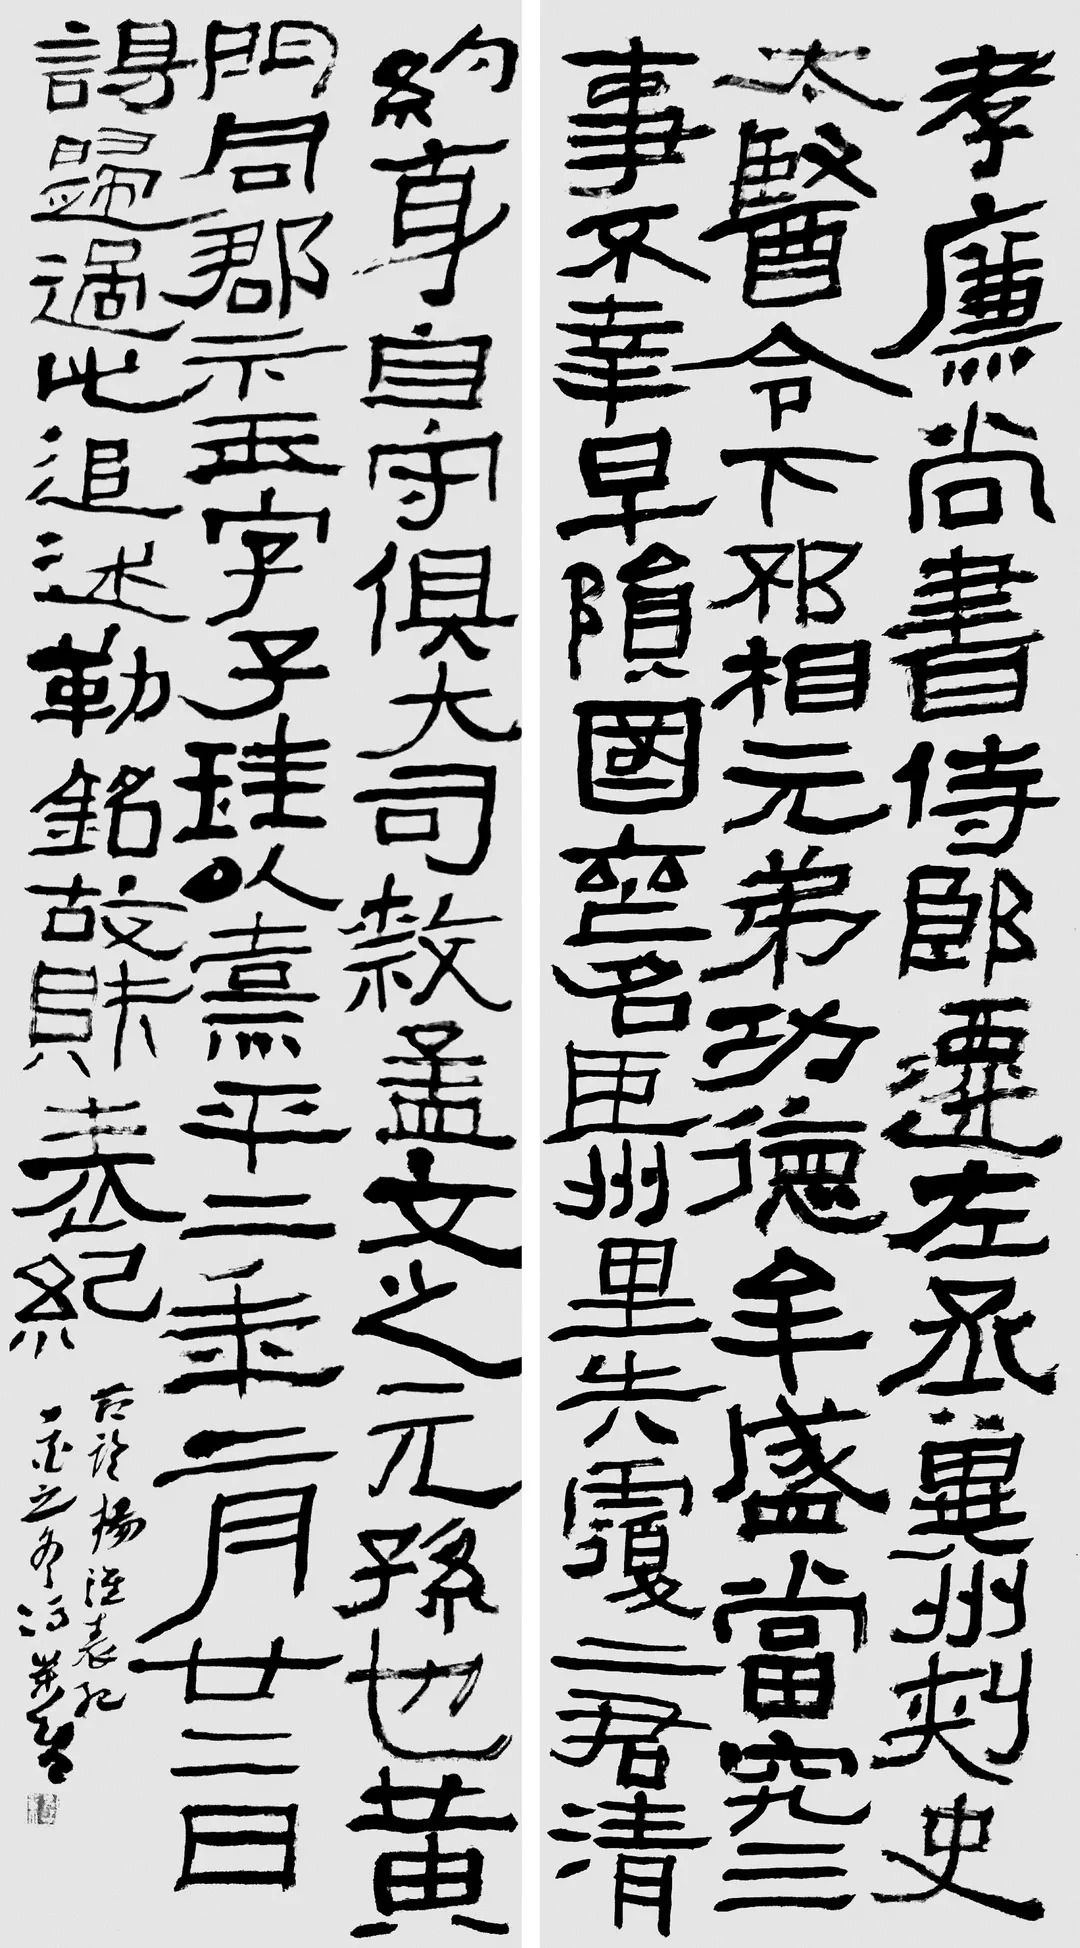 孝廉尚書侍郎遷左丞冀州刺史
太醫令下邳相元弟功德牟盛當究三
事不幸早隕國喪名臣州里失覆二君清
約身自守俱大司隸孟文之元孫也黃
門同郡卞玉字子珪以熹平二年二月廿二日
謁歸過此追述勒銘故財表紀
節臨楊淮表記
之冬馮